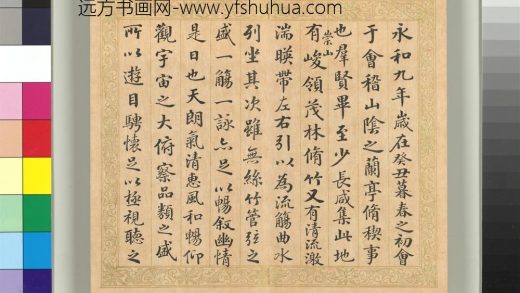 远方书画网-www.yfshuhua.com
永和九年歲在癸丑暮春之初會
于會稽山陰之蘭亭脩稧事
也羣賢畢至少長咸集此地
有崇山峻領茂林脩竹又有清流激
湍暎帶左右引以為流觴曲水
列坐其次雖無絲竹管弦之
盛一觴一詠亦足以暢叙幽情
是日也天朗氣清惠風和暢仰
觀宇宙之大俯察品類之盛
所以遊目騁懷足以極視聽之